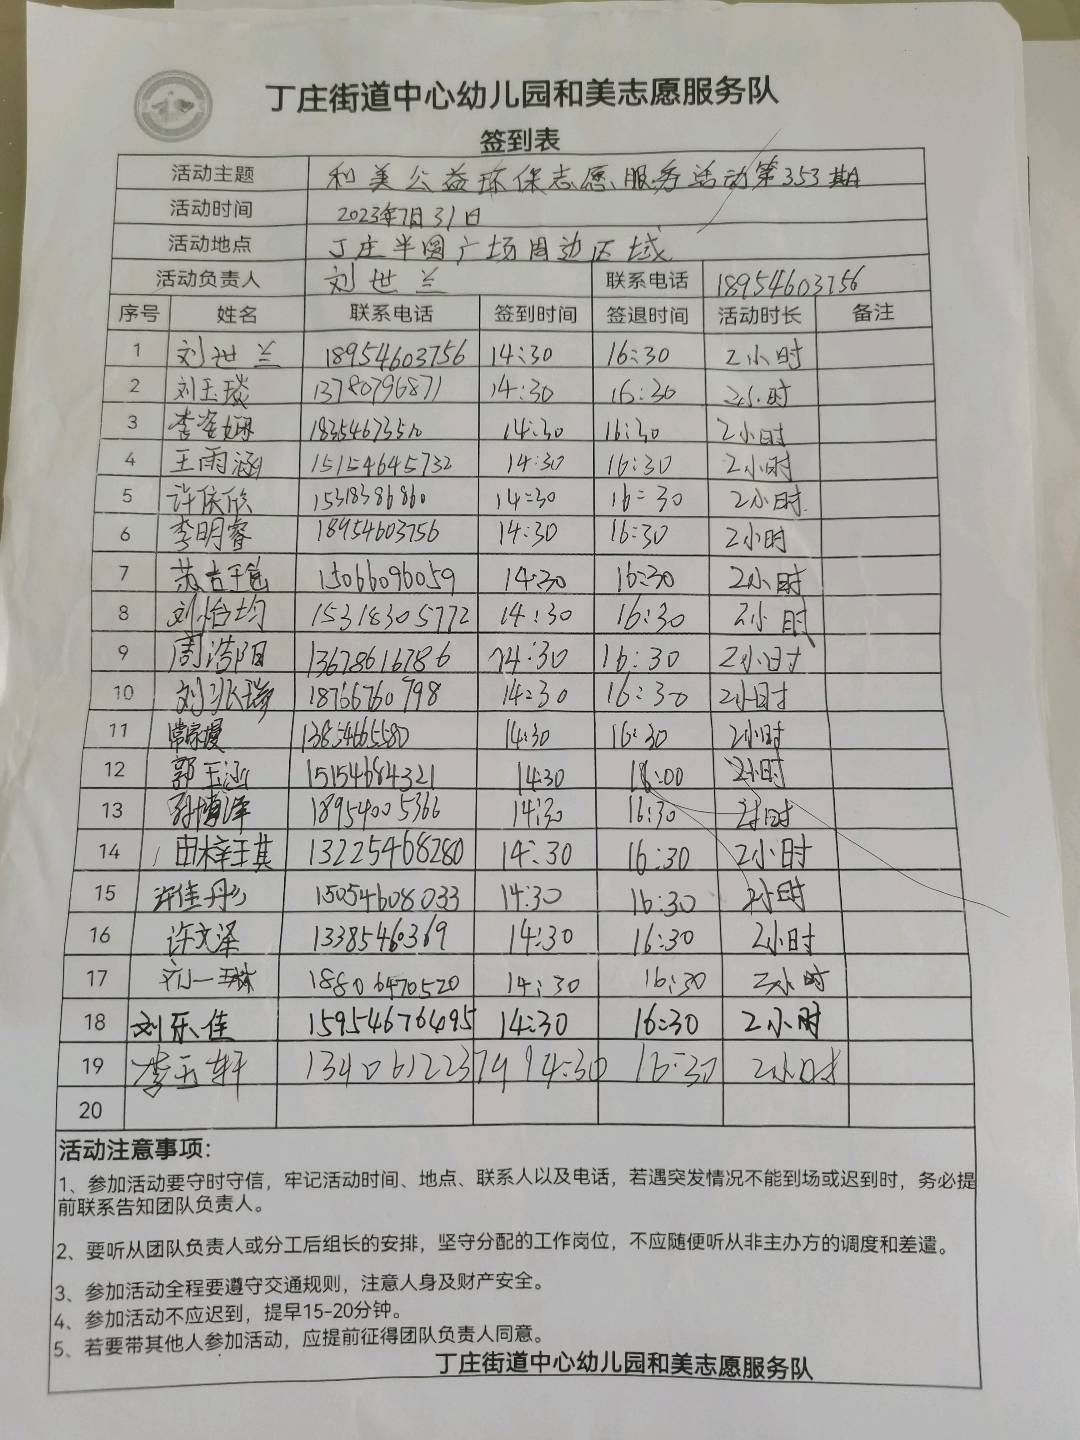 丁庄街道中心幼儿园和美志愿服务队
签到表
活动主题 和美公益环保志愿服务活动第353期
活动时间 2023年7月31日
活动地点 丁庄半圆广场周边区域
活动负责人 刘世兰 联系电话 18954603756
序号 姓名 联系电话 签到时间 签退时间 活动时长 备注
1 刘世兰 18954603756 14:30 16:30 2小时
2 刘玉琰 13780796871 14:30 16:30 2小时
3 李姿娜 18354673510 14:30 16:30 2小时
4 王雨涵 15154645732 14:30 16:30 2小时
5 许依欣 15318386860 14:30 16:30 2小时
6 李明睿 18954603756 14:30 16:30 2小时
7 15066096059 14:30 16:30 2小时
8 刘怡均 15318305772 14:30 16:30 2小时
9 周浩阳 13678616786 14:30 16:30 2小时
10 刘兆瑞 18766760798 14:30 16:30 2小时
11 13854665580 14:30 16:30 2小时
12 郭玉涵 15154684321 14:30 2小时
13 孙博泽 18954005366 14:30 16:30 2小时
14 由梓琪 13225468280 14:30 16:30 2小时
15 许佳彤 15054608033 14:30 16:30 2小时
16 许文泽 1338546369 14:30 16:30 2小时
17 刘一琳 18806470520 14:30 16:30 2小时
18 刘乐佳 15954676495 14:30 16:30 2小时
19 李玉轩 13406122379 14:30 16:30 2小时
20
活动注意事项:
1、参加活动要守时守信，牢记活动时间、地点、联系人以及电话，若遇突发情况不能到场或迟到时，务必提
前联系告知团队负责人。
2、要听从团队负责人或分工后组长的安排，坚守分配的工作岗位，不应随便听从非主办方的调度和差遣。
3、参加活动全程要遵守交通规则，注意人身及财产安全。
4、参加活动不应迟到，提早15-20分钟。
5、若要带其他人参加活动，应提前征得团队负责人同意。
丁庄街道中心幼儿园和美志愿服务队